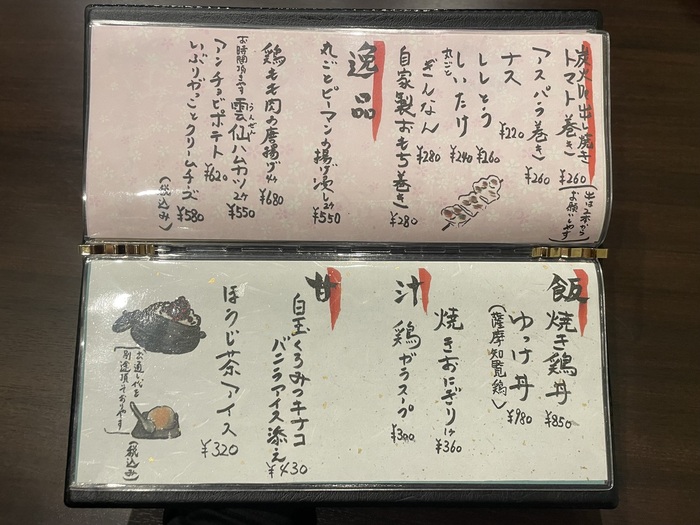 炭火串出し焼き
トマト巻き ¥260
(串は2本から
お願いしやす)
アスパラ巻き ¥260
ナス ¥220
ししとう ¥260
丸ごと
しいたけ ¥240
ぎんなん ¥280
自家製おもち巻き ¥280
逸品
丸ごとピーマンの揚げ浸し2ケ ¥550
鶏もも肉の唐揚げ4ケ ¥680
お時間頂きます
うんぜん
雲仙ハムカツ2ケ ¥550
アンチョビポテト ¥620
いぶりがっことクリームチーズ ¥580
(税込み)
飯
焼き鶏丼 ¥850
ゆっけ丼 ¥980
(薩摩知覧鶏)
焼きおにぎり1ケ ¥360
汁
鶏ガラスープ ¥300
甘
白玉くろみつキナコ
バニラアイス添え ¥430
ほうじ茶アイス ¥320
お通し代を
別途頂きおりやす
(税込み)